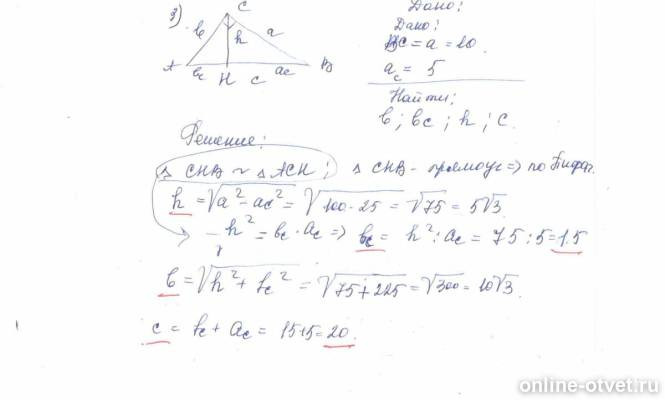 3)
C
b h a
A bc H c ac B
Дано:
Дано:
BC = a = 10.
ac = 5
Найти:
b; bc; h; c.
Решение:
△ CHB ~ △ ACH; △ CHB - прямоуг => по Пифаг.
h = √a² - ac² = √100 - 25 = √75 = 5√3
h² = bc · ac => bc = h² : ac = 75 : 5 = 15
b = √h² + bc² = √75 + 225 = √300 = 10√3.
c = bc + ac = 15+5 = 20.
online-otvet.ru